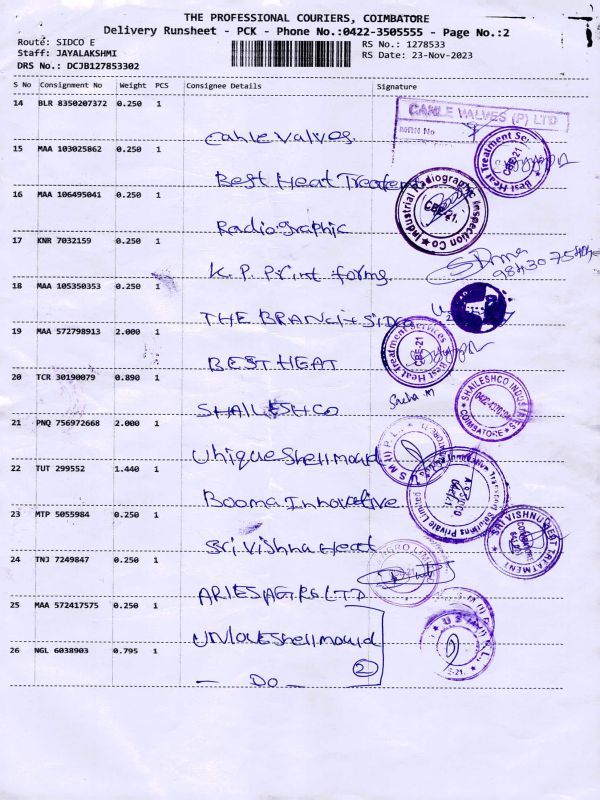 THE PROFESSIONAL COURIERS, COIMBATORE
Delivery Runsheet - PCK - Phone No.:0422-3505555 - Page No.:2
Route: SIDCO E
Staff: JAYALAKSHMI
DRS No.: DCJB127853302
RS No.: 1278533
RS Date: 23-Nov-2023
S No Consignment No Weight PCS Consignee Details Signature
14 BLR 8350207372 0.250 1
Cahle Valves
CAHLE VALVES (P) LTD
15 MAA 103025862 0.250 1
Best Heat Treatment
Best Heat Treatment Ser
CBE-21
16 MAA 106495041 0.250 1
Radiographic
Industrial Radiographic Inspection Co
CBE-21.
17 KNR 7032159 0.250 1
K. P. Print forms
18 MAA 105350353 0.250 1
THE BRANCH SIDCO
19 MAA 572798913 2.000 1
BEST HEAT
Best Heat Treatment Services
CBE-21
20 TCR 30190079 0.890 1
SHAILESHCO
SHAILESHCO INDUSTRIES
COIMBATORE
21 PNQ 756972668 2.000 1
Unique Shell mould
22 TUT 299552 1.440 1
Booma Innovative
Booma Innovative Transport Solutions Private Limited
23 MTP 5055984 0.250 1
Sri Vishnu Heat
SRI VISHNU HEAT TREATMENT
24 TNJ 7249847 0.250 1
ARIES AGRO LTD
25 MAA 572417575 0.250 1
UNIQUE Shell mould
26 NGL 6038903 0.795 1
— DO — 2